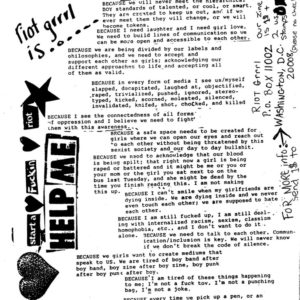 riot grrrl
is.....
BECAUSE we will never meet the hierarchical
BOY standards of talented, or cool, or smart.
They are created to keep us out, and if we
ever meet them they will change, or we will
become tokens.
BECAUSE I need laughter and I need girl love.
We need to build lines of communication so we
can be more open and accessible to each other.
BECAUSE we are being divided by our labels and
philosophies, and we need to accept and
support each other as girls; acknowledging our
different approaches to life and accepting all
of them as valid.
BECAUSE in every form of media I see us/myself
slapped, decapitated, laughed at, objectified,
raped, trivialized, pushed, ignored, stereo-
typed, kicked, scorned, molested, silenced,
invalidated, knifed, shot, choked, and killed
BECAUSE I see the connectedness of all forms
of oppression and I believe we need to fight
them with this awareness.
BECAUSE a safe space needs to be created for
girls where we can open our eyes and reach out
to each other without being threatened by this
sexist society and our day to day bullshit.
BECAUSE we need to acknowledge that our blood
is being spilt; that right now a girl is being
raped or battered and it might be me or you or
your mom or the girl you sat next to on the
bus last Tuesday, and she might be dead by the
time you finish reading this. I am not making
this up.
BECAUSE I can't smile when my girlfriends are
dying inside. We are dying inside and we never
even touch each other; we are supposed to hate
each other.
BECAUSE I am still fucked up, I am still deal-
ing with internalized racism, sexism, classism
homophobia, etc., and I don't want to do it
alone.
BECAUSE we need to talk to each other. Commun-
ication/inclusion is key. We will never know
if we don't break the code of silence.
BECAUSE we girls want to create mediums that
speak to US. We are tired of boy band after
boy band, boy zine after boy zine, boy punk
after boy punk after boy.
BECAUSE I am tired of these things happening
to me; I'm not a fuck toy. I'm not a punching
bag, I'm not a joke.
BECAUSE every time we pick up a pen, or an
start a
Fuckin
riot
HELP ME
FOR MORE info:→
RIOT Grrrl
P.O. BOX 11002
WASHINGTON, D.C.
20008